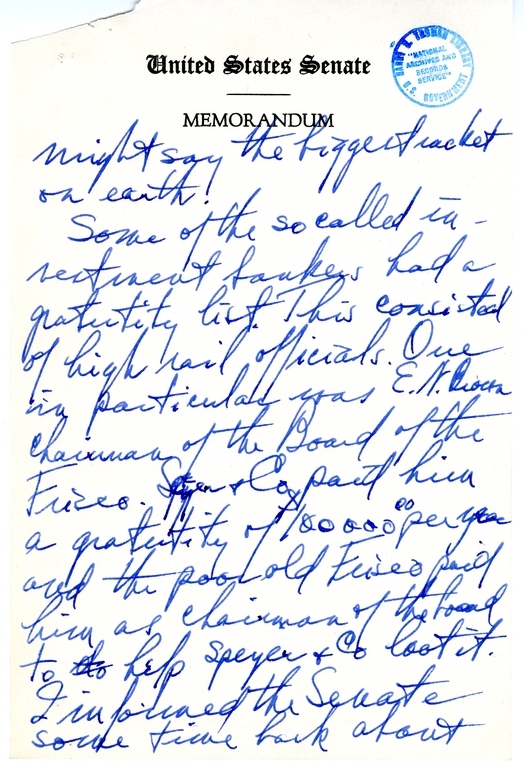 United States Senate
MEMORANDUM
HARRY S. TRUMAN LIBRARY
"NATIONAL
ARCHIVES AND
RECORDS
SERVICE"
might say the biggest racket
on earth!
Some of the so called in-
vestment bankers had a
gratutity list. This consisted
of high rail officials. One
in particular was E.N. Brown
chairman of the Board of the
Frisco. Speyer & Co paid him
a gratutity of 10000⁰⁰ per year
and the poor old Frisco paid
him as chairman of the board
to help Speyer & Co loot it.
I informed the Senate
some time back about